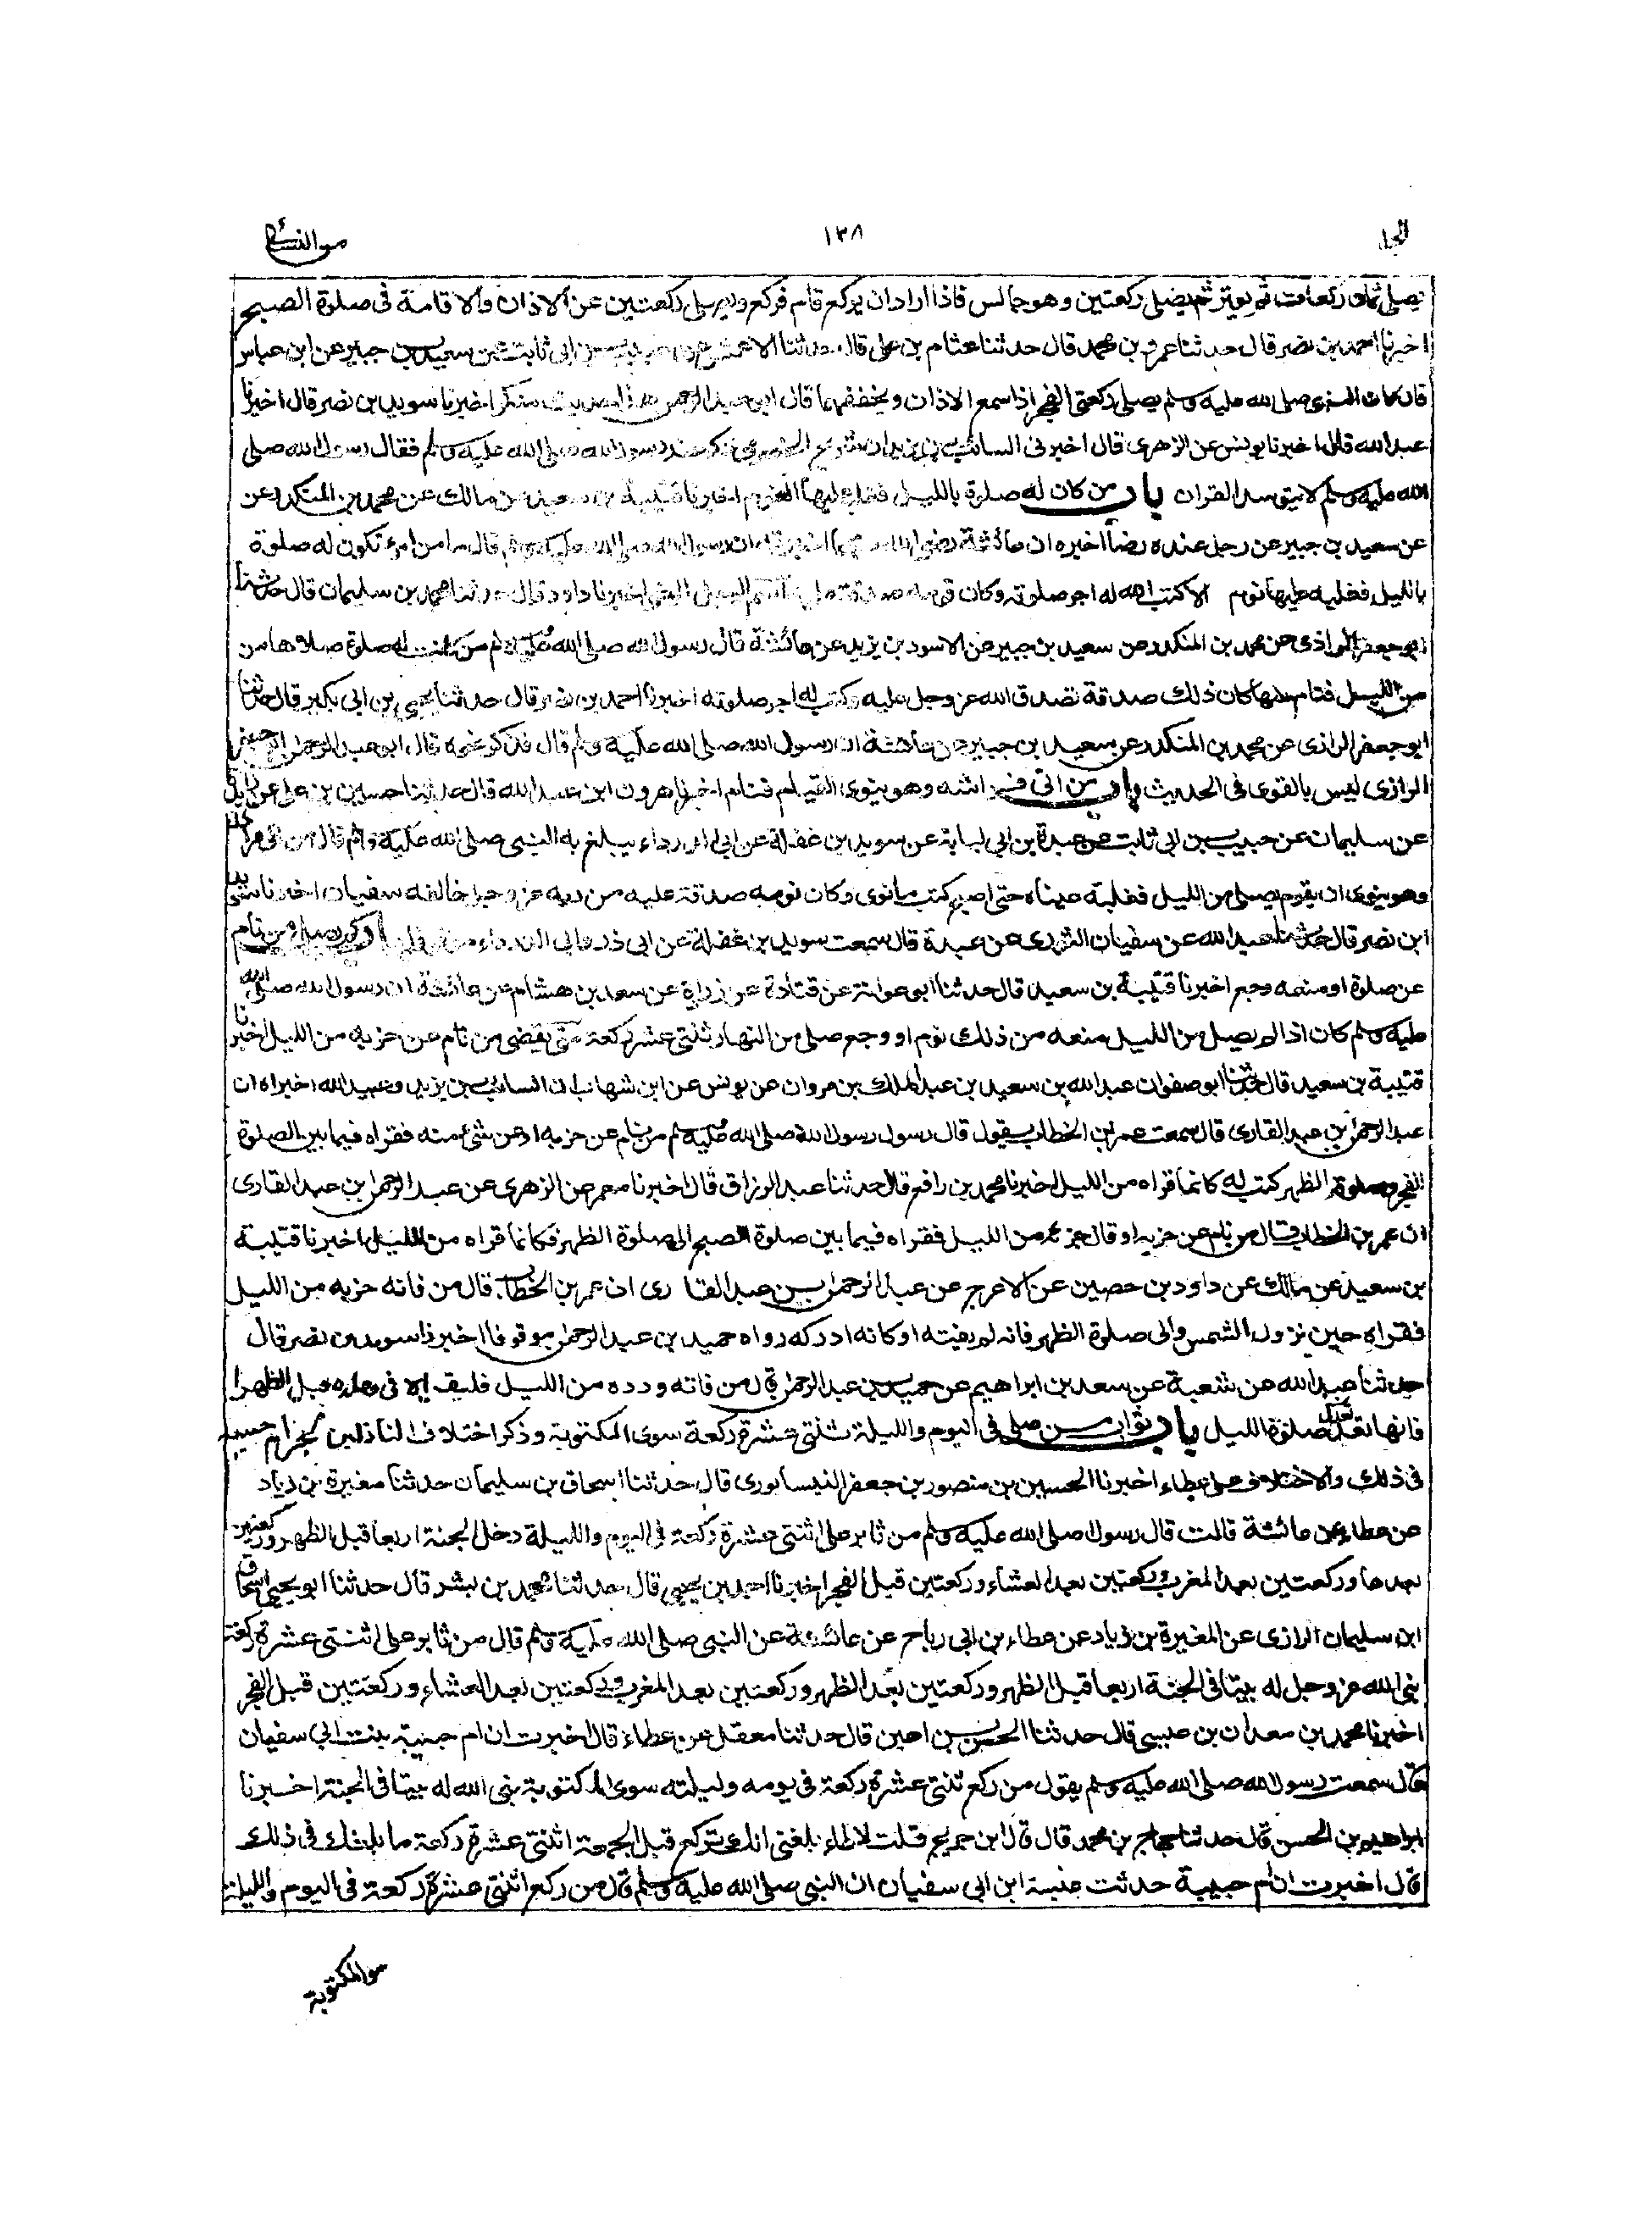 ١٣٨
يصلى ثمان ركعات ثم يوتر ثم يصلى ركعتين وهو جالس فاذا اراد ان يركع قام فركع ويصلى ركعتين عن الاذان والاقامة فى صلوة الصبح
اخبرنا احمد بن نصر قال حدثنا عمرو بن محمد قال حدثنا عثام بن على قال حدثنا الاعمش عن حبيب بن ابى ثابت عن سعيد بن جبير عن ابن عباس
قال كان النبى صلى الله عليه وسلم يصلى ركعتى الفجر اذا سمع الاذان ويخففهما قال ابو عبد الرحمن هذا الحديث منكر اخبرنا سويد بن نصر قال اخبرنا
عبد الله قال اخبرنا يونس عن الزهرى قال اخبرنى السائب بن يزيد ان شريح الحضرمى ذكر عند رسول الله صلى الله عليه وسلم فقال رسول الله صلى
الله عليه وسلم لا يتوسد القران باب من كان له صلوة بالليل فغلبه عليها النوم اخبرنا قتيبة بن سعيد عن مالك عن محمد بن المنكدر عن
عن سعيد بن جبير عن رجل عنده رضا اخبره ان عائشة رضى الله اخبرته ان رسول الله صلى الله عليه وسلم قال ما من امرء تكون له صلوة
بالليل فغلبه عليها نوم الا كتب الله له اجر صلوته وكان نومه صدقة عليه اسم الرجل الرضى اخبرنا ابو داود قال حدثنا محمد بن سليمان قال حدثنا
ابو جعفر الرازى عن محمد بن المنكدر عن سعيد بن جبير عن الاسود بن يزيد عن عائشة قال رسول الله صلى الله عليه وسلم من كانت له صلوة صلاها من
من الليل فنام عنها كان ذلك صدقة تصدق الله عز وجل عليه وكتب له اجر صلوته اخبرنا احمد بن نصر قال حدثنا يحيى بن ابى بكير قال حدثنا
ابو جعفر الرازى عن محمد بن المنكدر عن سعيد بن جبير عن عائشة ان رسول الله صلى الله عليه وسلم قال فذكر نحوه قال ابو عبد الرحمن ابو جعفر
الرازى ليس بالقوى فى الحديث باب من اتى فراشه وهو ينوى القيام فنام اخبرنا هرون ابن عبد الله قال حدثنا حسين بن على عن زائدة
عن سليمان عن حبيب بن ابى ثابت عن عبدة بن ابى لبابة عن سويد بن غفلة عن ابى الدرداء يبلغ به النبى صلى الله عليه وسلم قال من اتى فراشه
وهو ينوى ان يقوم يصلى من الليل فغلبته عيناه حتى اصبح كتب ما نوى وكان نومه صدقة عليه من ربه عز وجل خالفه سفيان اخبرنا سويد
ابن نصر قال حدثنا عبد الله عن سفيان الثورى عن عبدة قال سمعت سويد بن غفلة عن ابى ذر وابى الدرداء من نام
عن صلوة او منعه وجع اخبرنا قتيبة بن سعيد قال حدثنا ابو عوانة عن قتادة عن زرارة عن سعد بن هشام عن عائشة ان رسول الله صلى الله
عليه وسلم كان اذا لم يصل من الليل منعه من ذلك نوم او وجع صلى من النهار ثنتى عشرة ركعة متى يقضى من نام عن حزبه من الليل اخبرنا
قتيبة بن سعيد قال حدثنا ابو صفوان عبد الله بن سعيد بن عبد الملك بن مروان عن يونس عن ابن شهاب ان السائب بن يزيد وعبيد الله اخبراه ان
عبد الرحمن بن عبد القارى قال سمعت عمر بن الخطاب يقول قال رسول رسول الله صلى الله عليه وسلم من نام عن حزبه او عن شئ منه فقراه فيما بين الصلوة
الفجر وصلوة الظهر كتب له كانما قراه من الليل اخبرنا محمد بن رافع قال حدثنا عبد الرزاق قال اخبرنا معمر عن الزهرى عن عبد الرحمن بن عبد القارى
ان عمر بن الخطاب قال من نام عن حزبه او قال جزءه من الليل فقراه فيما بين صلوة الصبح الى صلوة الظهر فكانما قراه من الليل اخبرنا قتيبة
بن سعيد عن مالك عن داود بن حصين عن الاعرج عن عبد الرحمن بن عبد القارى ان عمر بن الخطاب قال من فاته حزبه من الليل
فقراه حين تزول الشمس والى صلوة الظهر فانه لم يفته او كانه ادركه رواه حميد بن عبد الرحمن موقوفا اخبرنا سويد بن نصر قال
حدثنا عبد الله عن شعبة عن سعد بن ابراهيم عن حميد بن عبد الرحمن قال من فاته ورده من الليل فليقراه فى صلوة قبل الظهر
فانها تعدل صلوة الليل باب ثواب من صلى فى اليوم والليلة ثنتى عشرة ركعة سوى المكتوبة وذكر اختلاف الناقلين لخبر ام حبيبة
فى ذلك والاختلاف على عطاء اخبرنا الحسين بن منصور بن جعفر النيسابورى قال حدثنا اسحاق بن سليمان حدثنا مغيرة بن زياد
عن عطاء عن عائشة قالت قال رسول الله صلى الله عليه وسلم من ثابر على اثنتى عشرة ركعة فى اليوم والليلة دخل الجنة اربعا قبل الظهر وركعتين
بعدها وركعتين بعد المغرب وركعتين بعد العشاء وركعتين قبل الفجر اخبرنا احمد بن يحيى قال حدثنا محمد بن بشر قال حدثنا ابو يحيى اسحاق
ابن سليمان الرازى عن المغيرة بن زياد عن عطاء بن ابى رباح عن عائشة عن النبى صلى الله عليه وسلم قال من ثابر على اثنتى عشرة ركعة
بنى الله عز وجل له بيتا فى الجنة اربعا قبل الظهر وركعتين بعد الظهر وركعتين بعد المغرب وركعتين بعد العشاء وركعتين قبل الفجر
اخبرنا محمد بن معدان بن عيسى قال حدثنا الحسن بن اعين قال حدثنا معقل عن عطاء قال اخبرت ان ام حبيبة بنت ابى سفيان
قال سمعت رسول الله صلى الله عليه وسلم يقول من ركع ثنتى عشرة ركعة فى يومه وليلته سوى المكتوبة بنى الله له بيتا فى الجنة اخبرنا
ابراهيم بن الحسن قال حدثنا حجاج بن محمد قال قال ابن جريج قلت لعطاء بلغنى انك تركع قبل الجمعة اثنتى عشرة ركعة ما بلغك فى ذلك
قال اخبرت ان ام حبيبة حدثت عنبسة ابن ابى سفيان ان النبى صلى الله عليه وسلم قال من ركع اثنتى عشرة ركعة فى اليوم والليلة
سوى المكتوبة